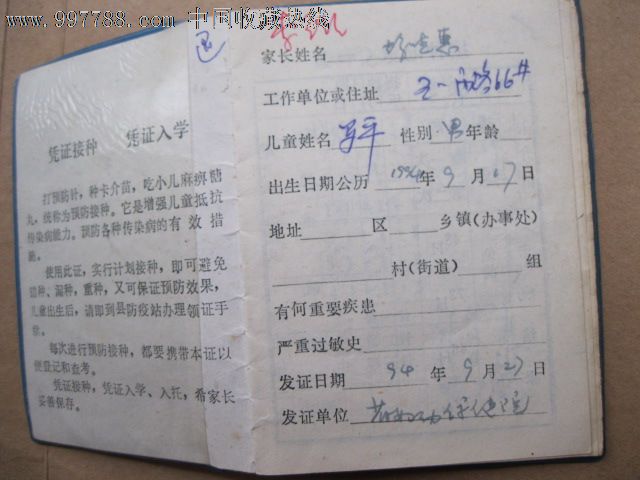 www.997788.com 中国收藏热线
凭证接种 凭证入学
打预防针，种卡介苗，吃小儿麻痹糖
丸，统称为预防接种。它是增强儿童抵抗
传染病能力。预防各种传染病的有效措
施。
使用此证，实行计划接种，即可避免
错种、漏种，重种，又可保证预防效果，
儿童出生后，请即到县防疫站办理领证手
续。
每次进行预防接种，都要携带本证以
便登记和查考。
凭证接种，凭证入学、入托，希家长
妥善保存。
家长姓名
工作单位或住址 66#
儿童姓名 性别 男 年龄
出生日期公历 1994年 9 月 17 日
地址 区 乡镇(办事处)
村(街道) 组
有何重要疾患
严重过敏史
发证日期 94 年 9 月 27 日
发证单位 保健院